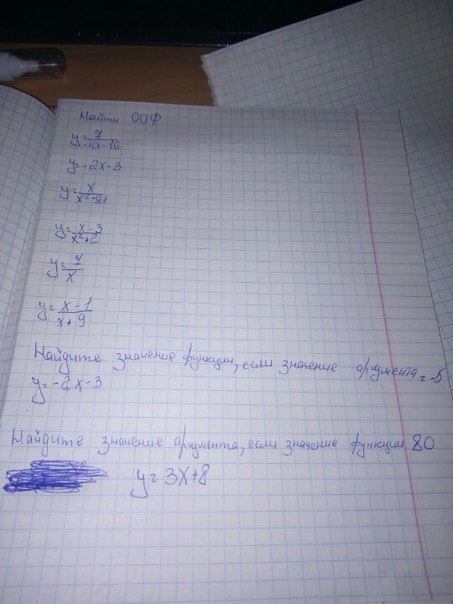 Найти ООФ
y=7/-4x-16
y=-2x-3
y=x/x²-81
y=x-3/x²+2
y=7/x
y=x-1/x+9
Найдите значение функции, если значение аргумента=-5
y=-2x-3
Найдите значение аргумента, если значение функции 80
y=3x+8